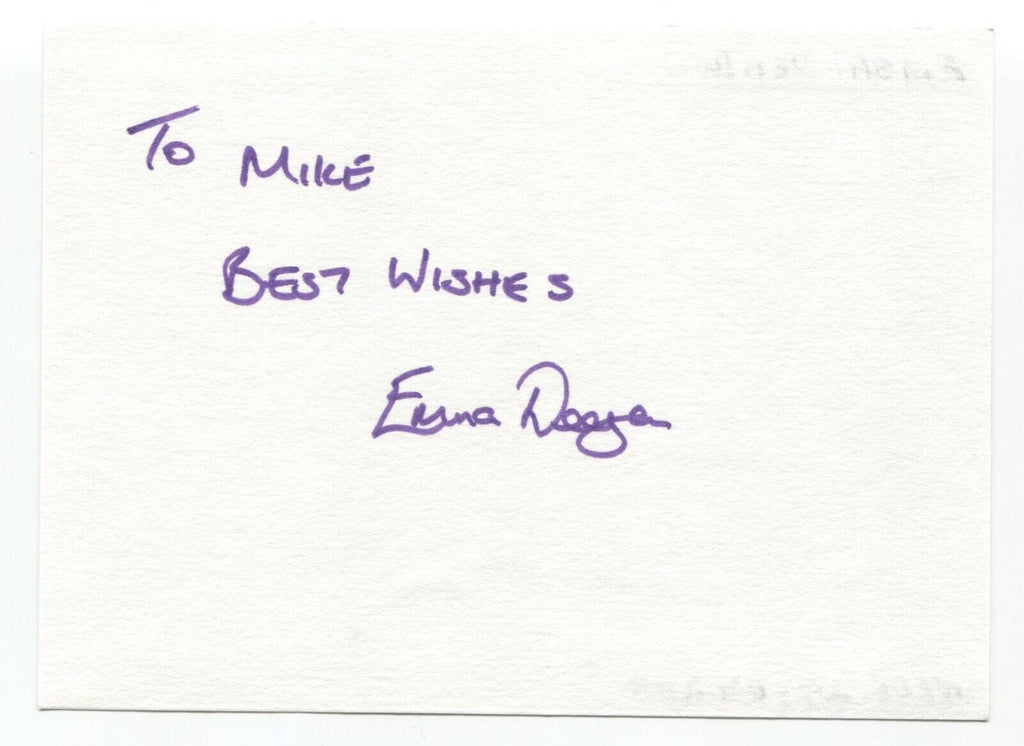 To MIKE
BEST WISHES
Emma